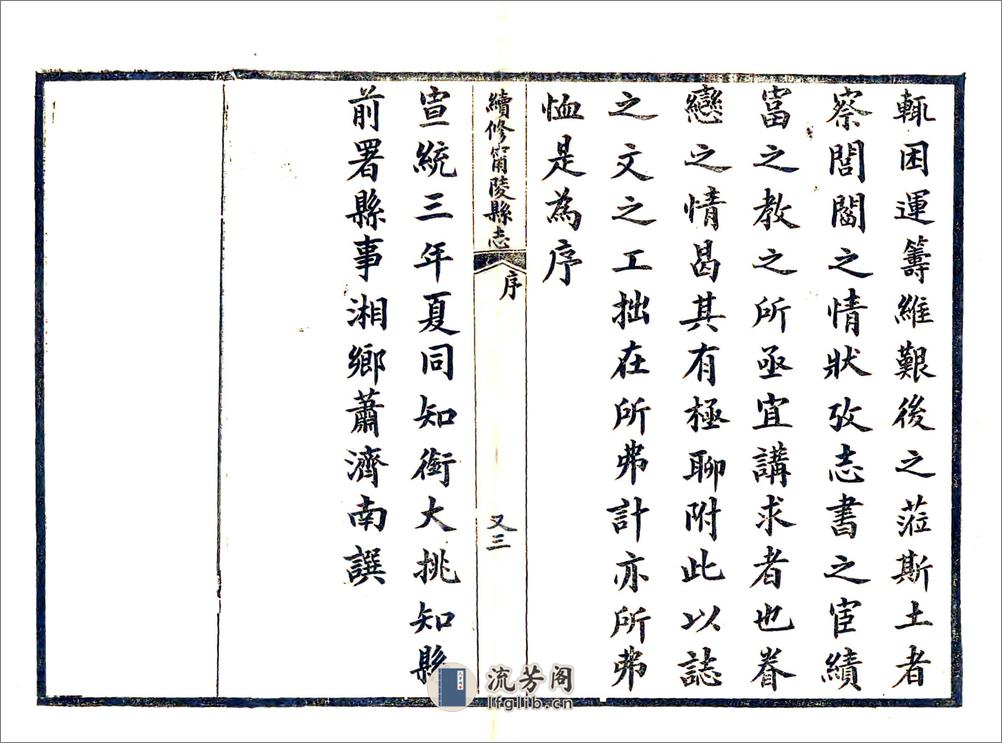 輒困運籌維艱後之蒞斯土者
察閭閻之情狀攷志書之宦績
富之教之所亟宜講求者也眷
戀之情曷其有極聊附此以誌
之文之工拙在所弗計亦所弗
恤是為序
續修甯陵縣志
序
又三
宣統三年夏同知銜大挑知縣
前署縣事湘鄉蕭濟南譔
流芳阁
lfglib.cn